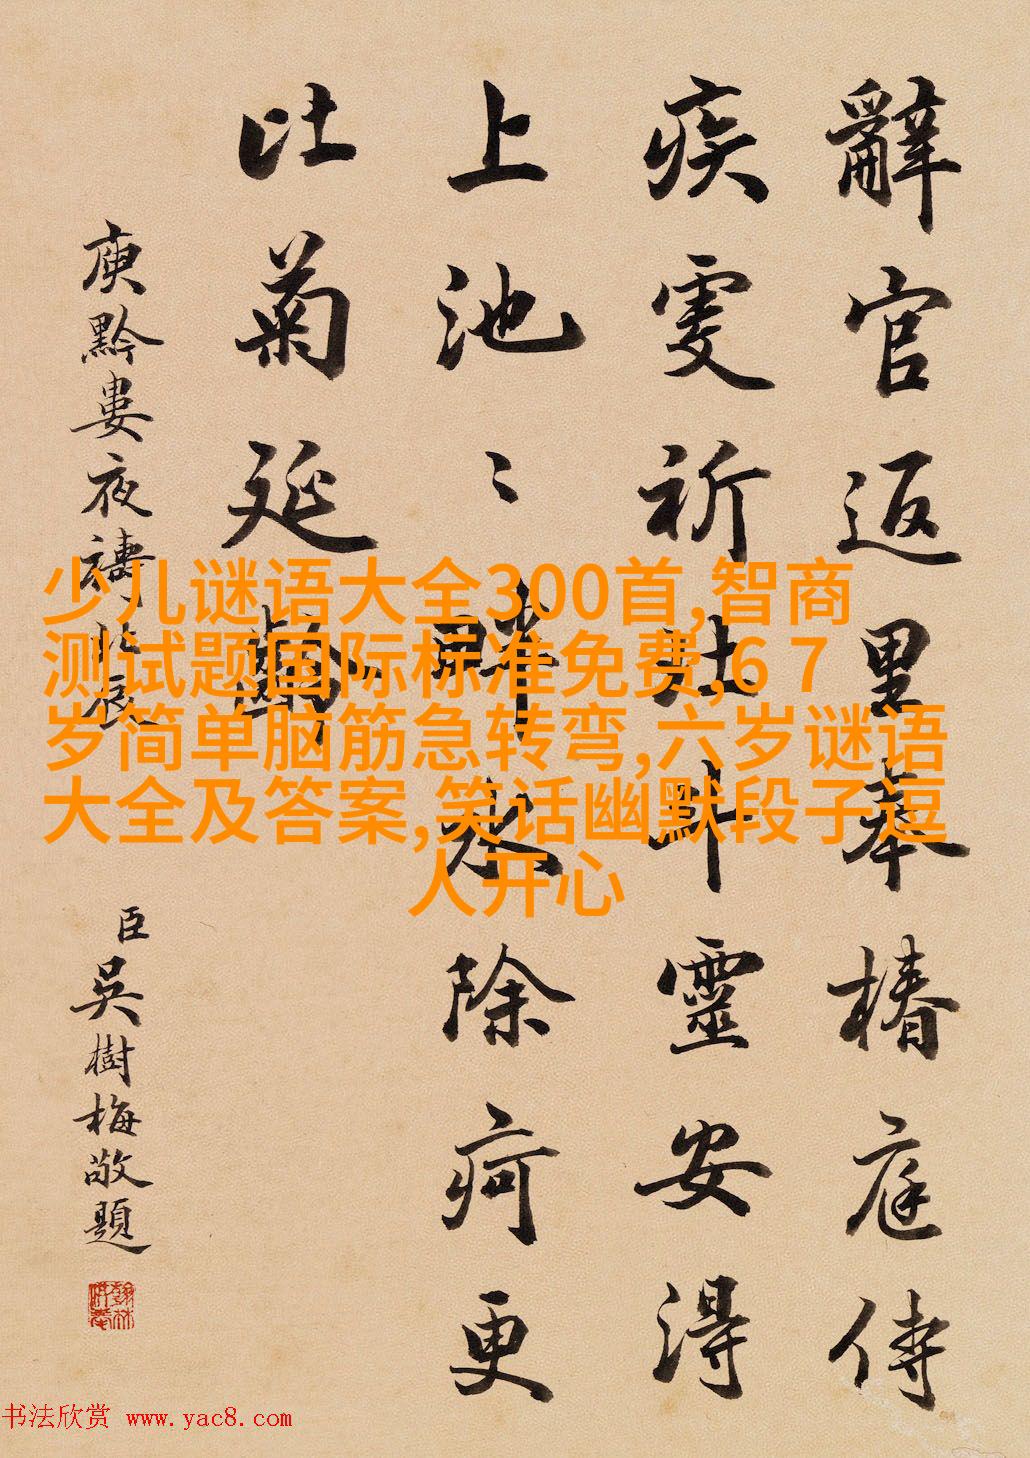 辭官返里奉椿庭侍
疾虔祈北斗靈安得
上池〻畔水除疴更
比菊延齡
庾黔婁夜禱北辰
臣吳樹梅敬題
少儿谜语大全300首,智商
测试题国际标准免费,6 7
岁简单脑筋急转弯,六岁谜语
大全及答案,笑话幽默段子逗
人开心
书法欣赏 www.yac8.com